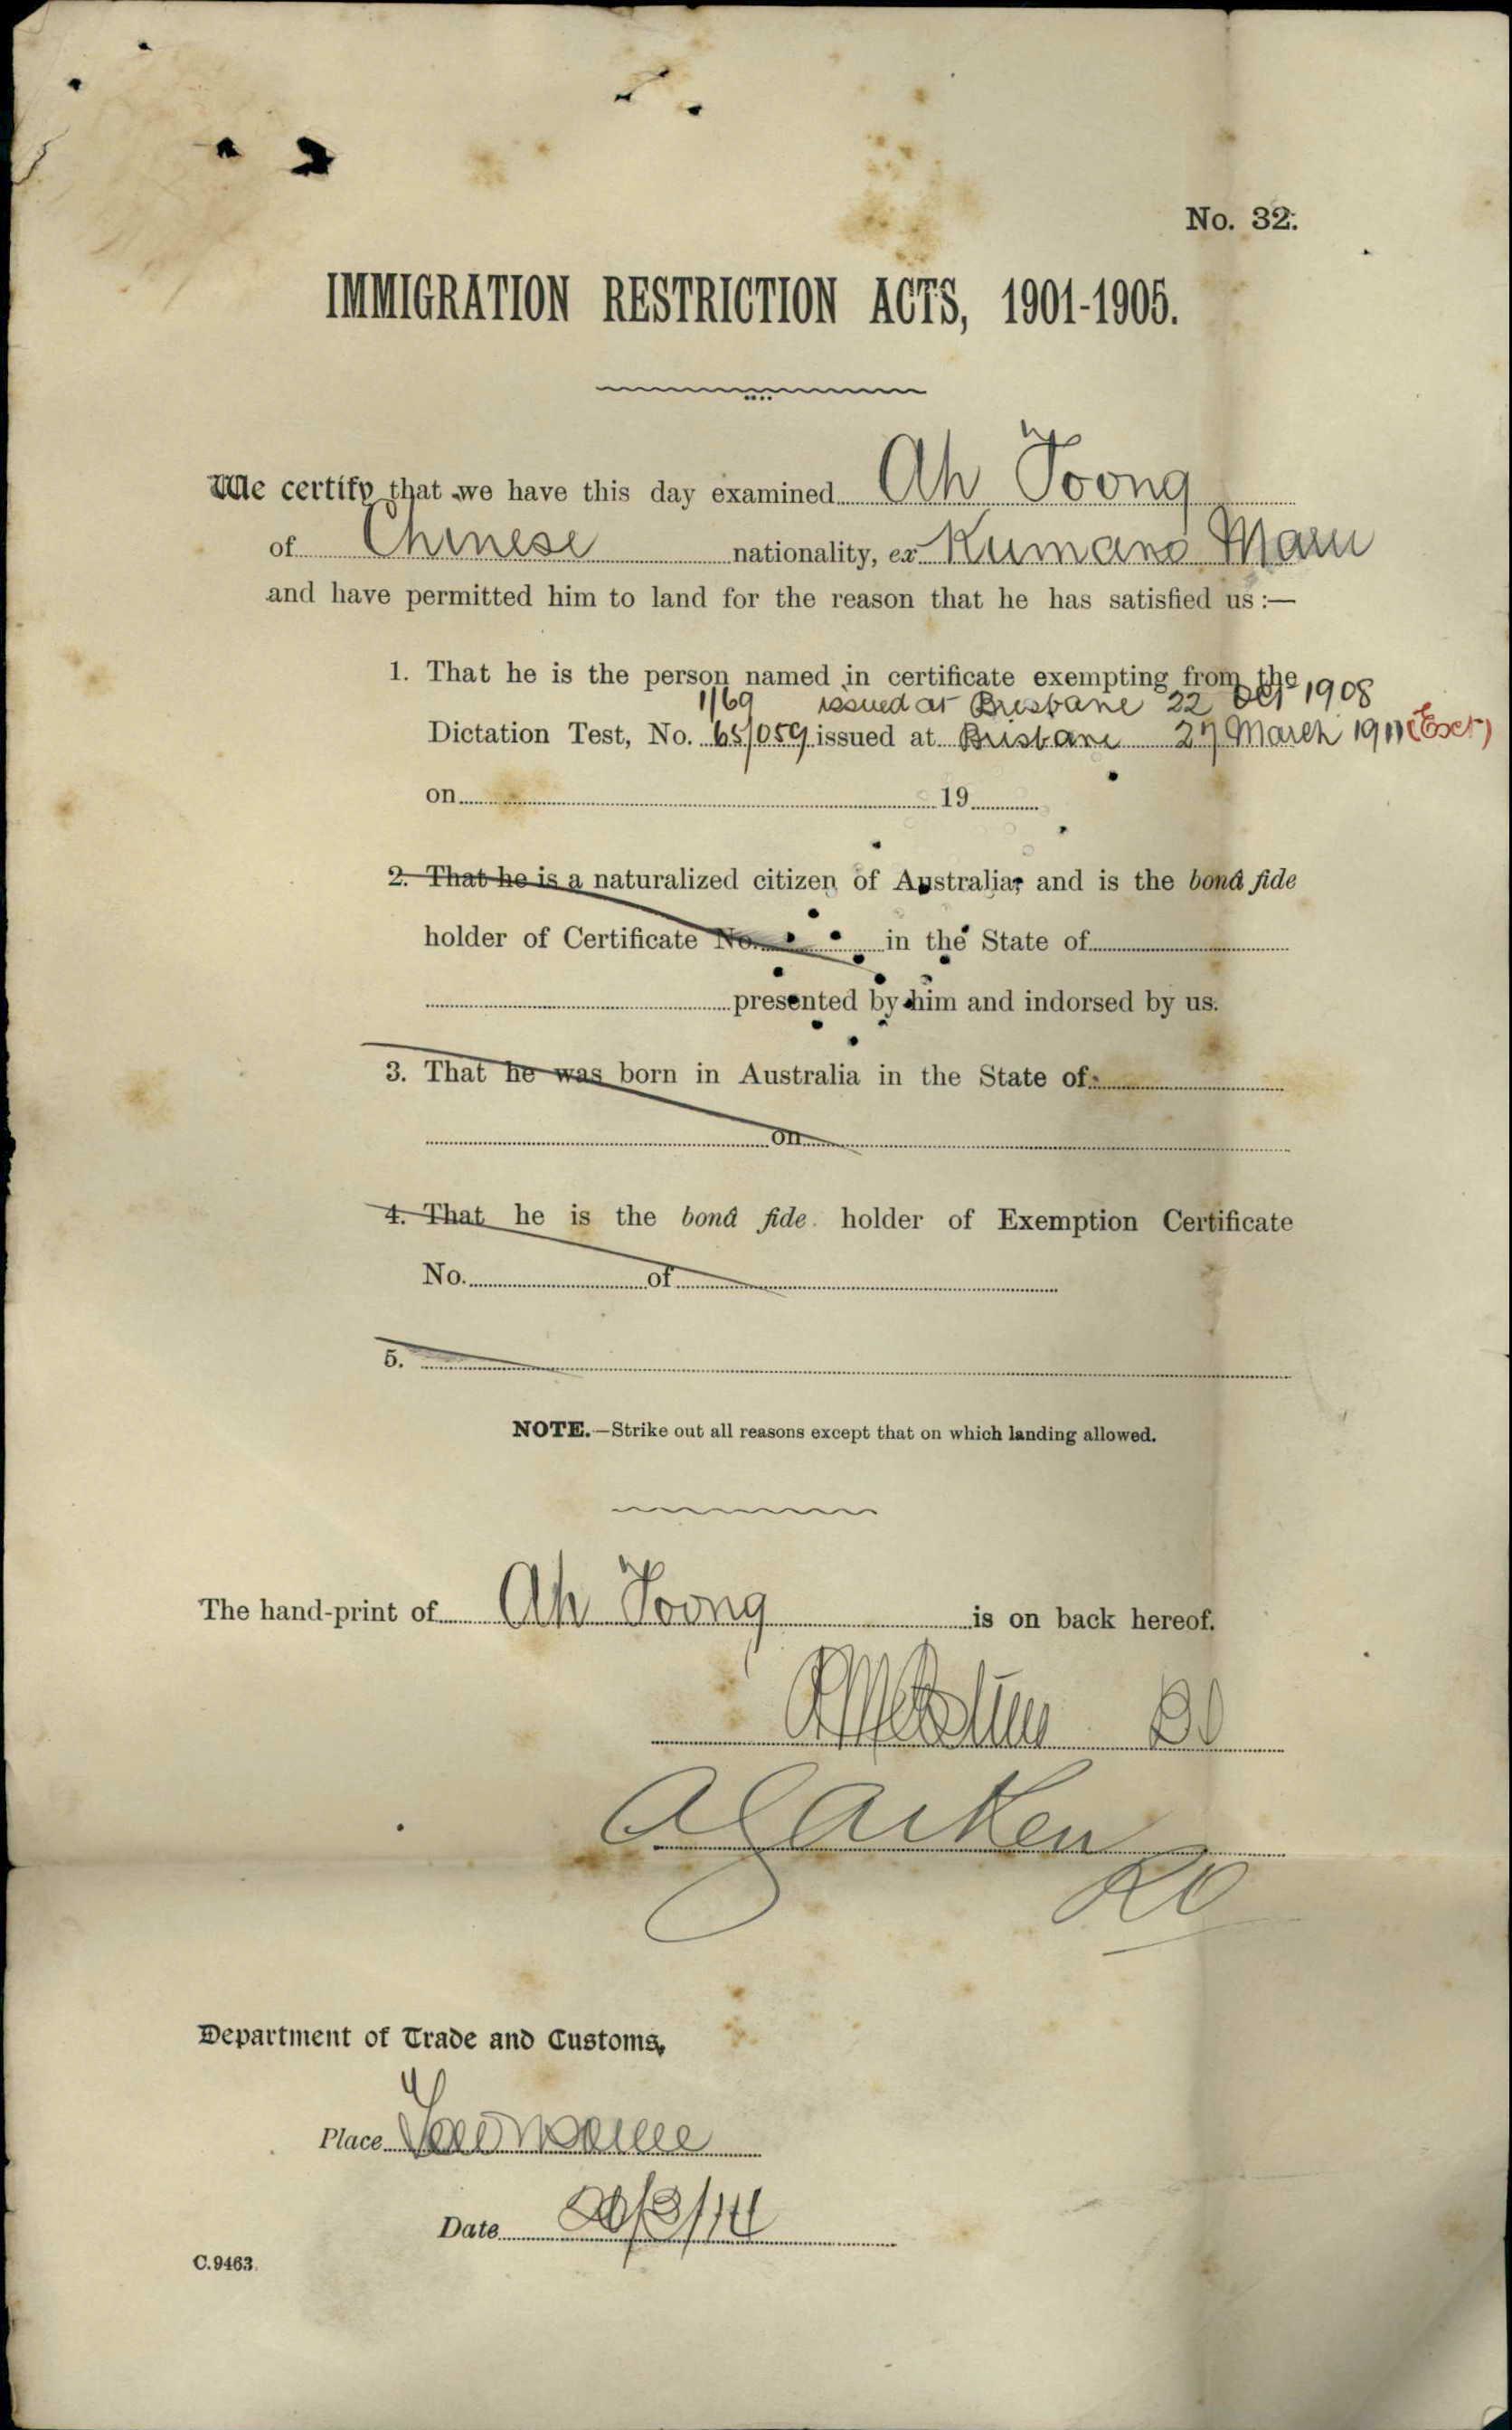 No. 32.
IMMIGRATION RESTRICTION ACTS, 1901-1905.
We certify that we have this day examined Ah Toong
of Chinese nationality, ex Kumano Maru
and have permitted him to land for the reason that he has satisfied us :—
1. That he is the person named in certificate exempting from the
1/69 issued at Brisbane 22 Oct 1908
Dictation Test, No. 65/059 issued at Brisbane 27 March 1911 (Ext)
on 19
2. That he is a naturalized citizen of Australia, and is the bonâ fide
holder of Certificate No. in the State of
presented by him and indorsed by us.
3. That he was born in Australia in the State of
on
4. That he is the bonâ fide holder of Exemption Certificate
No. of
5.
NOTE.—Strike out all reasons except that on which landing allowed.
The hand-print of Ah Toong is on back hereof.
Department of Trade and Customs,
Place Townsville
Date 20/3/14
C.9463.